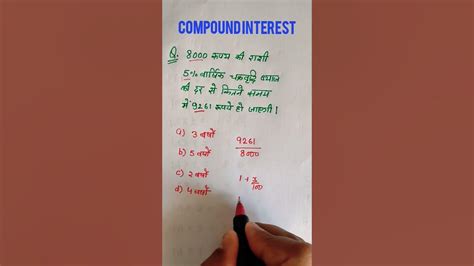 COMPOUND INTEREST
Q. 8000 रूपय की राशी
5% वार्षिक चक्रवृद्धि ब्याज
की दर से कितने समय
में 9261 रूपये हो जाएगी।
a) 3 वर्षों
b) 5 वर्षों
c) 2 वर्षों
d) 4 वर्षों
9261
8000
1 + r/100